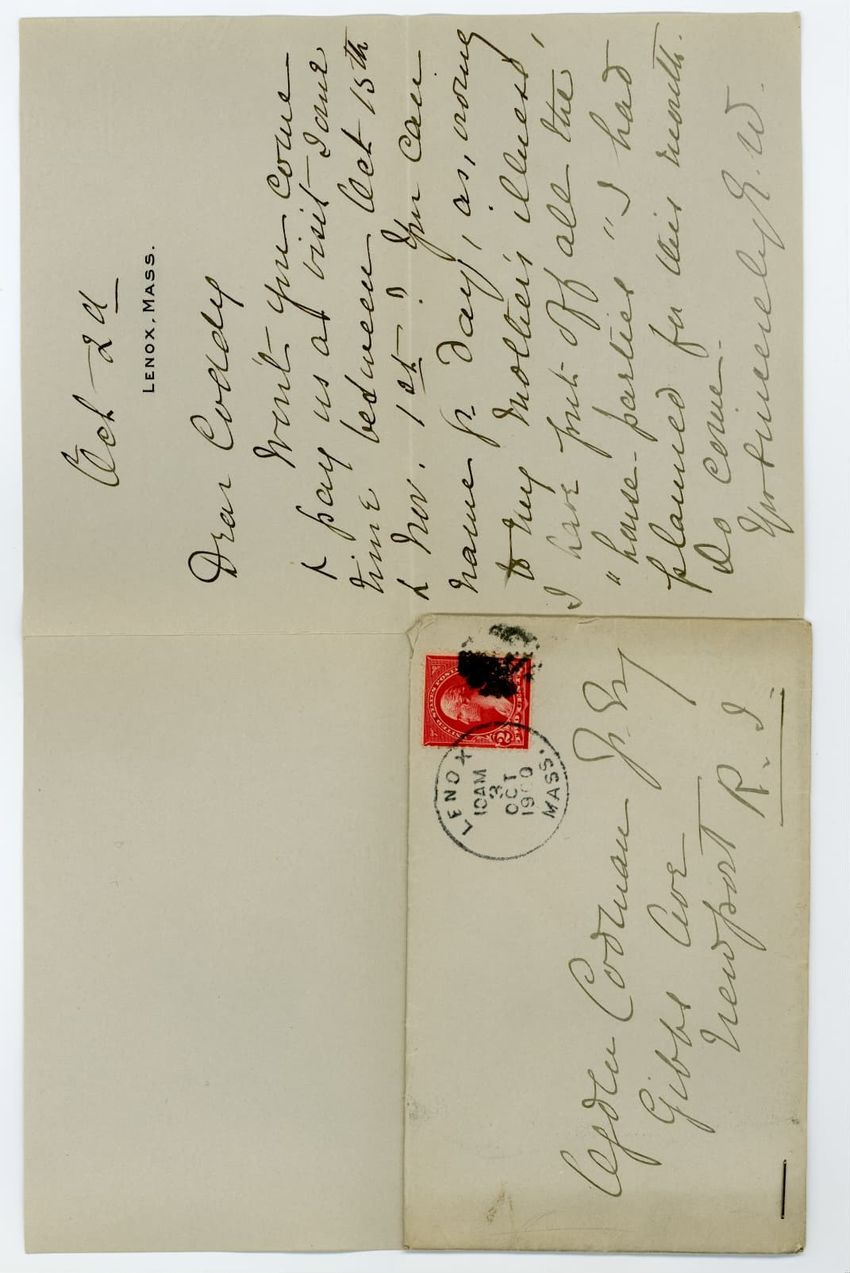 Oct 2d
LENOX, MASS.
Dear Coddy
Won't you come
& pay us a visit some
time between Oct 15th
& Nov. 1st? You can
name yr day, as, owing
to my Mother's illness,
I have put off all the
"house-parties" I had
planned for this month.
Do come.
Yrs sincerely E. W.
LENOX
10 AM
3
OCT
1900
MASS.
Ogden Codman Jr. Esq
Gibbs Ave
Newport
R. I.